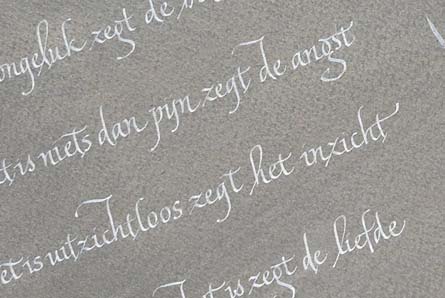 ongeluk zegt de
is niets dan pijn zegt de angst
et is uitzichtloos zegt het inzicht
is zegt de liefde